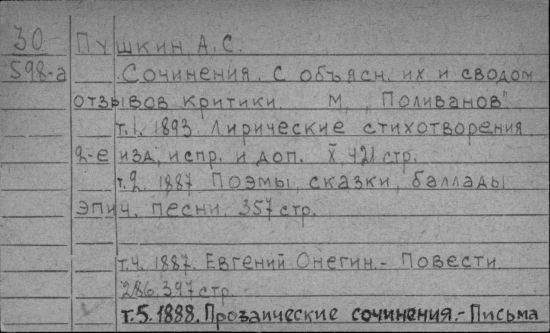 30 Пушкин А.С.
598-а Сочинения. С объясн. их и сводом
отзывов критики. М, „Поливанов"
т.1. 1893. Лирические стихотворения
2-е изд, испр. и доп. X, 421 стр.
т.2. 1887 Поэмы, сказки, баллады
эпич. песни. 357 стр.
т.4. 1887. Евгений Онегин.- Повести
286.397 стр.
т.5.1888. Прозаические сочинения.- Письма